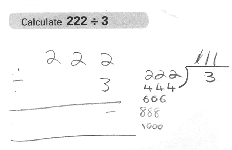 Calculate 222 ÷ 3
2 2 2
÷ 3
111
222 3
444
606
888
1000